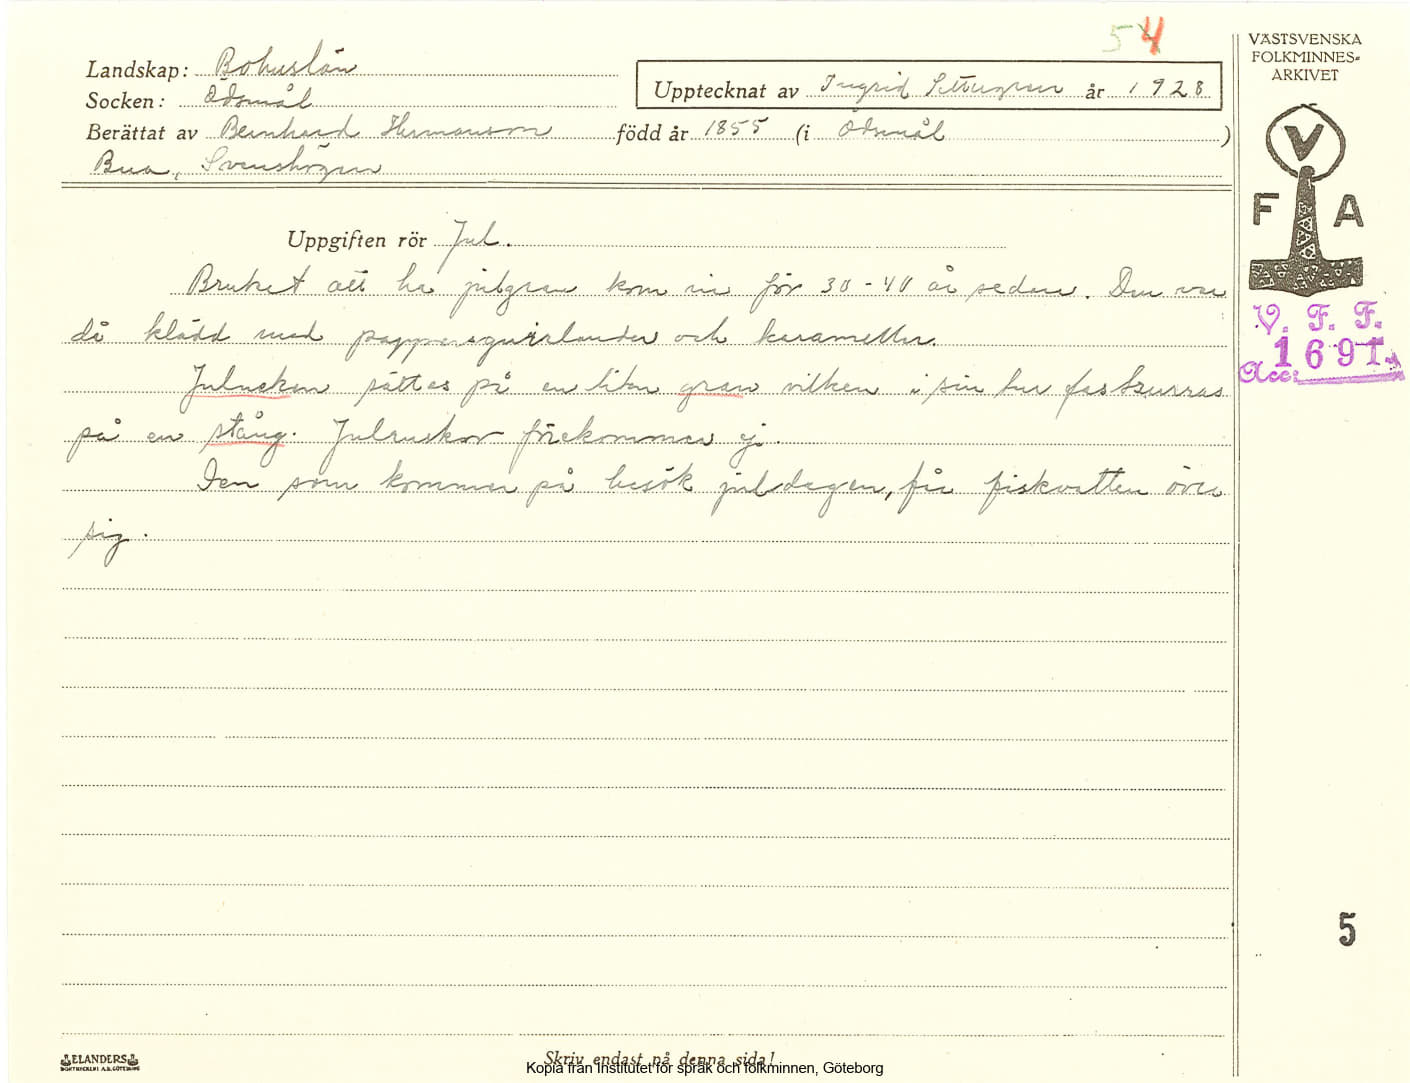 54
Landskap: Bohuslän
Socken: Ödsmål
Upptecknat av Ingrid år 1928
Berättat av Bernhard Hermansson född år 1855 (i Ödsmål )
Bua, Svenshögen
VÄSTSVENSKA
FOLKMINNES=
ARKIVET
V
F A
V. F. F.
1691
Acc:
Uppgiften rör Jul.
Bruket att ha julgran kom in för 30-40 år sedan. Den var
då klädd med pappersguirlander och karameller.
Julneken sättes på en liten gran vilken i sin tur fastsurras
på en stång. Julruskor förekommer ej.
Den som kommer på besök juldagen, får fiskvatten över
sig.
5
ELANDERS
BOKTRYCKERI A.B. GÖTEBORG
Skriv endast på denna sida!
Kopia från Institutet för språk och folkminnen, Göteborg